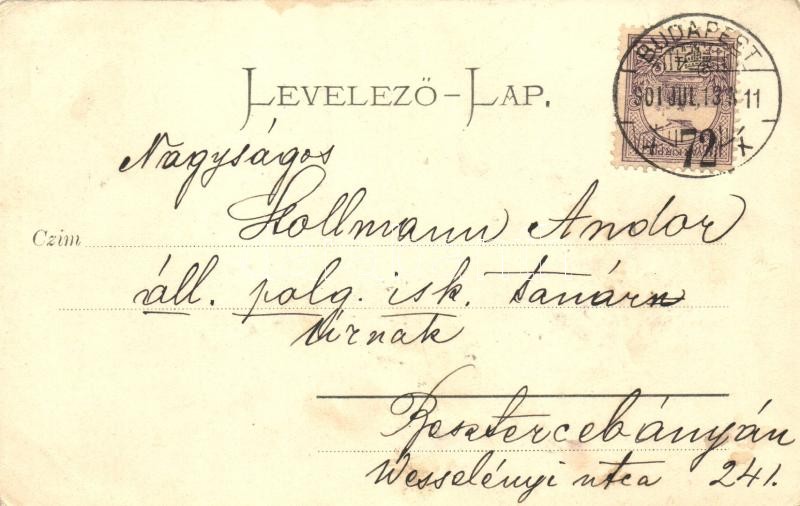 BUDAPEST
901 JUL. 13
11
72
LEVELEZŐ-LAP.
Nagyságos
Czim Hollmann Andor
áll. polg. isk. tanár
Úrnak
Besztercebányán
Wesselényi utca 241.